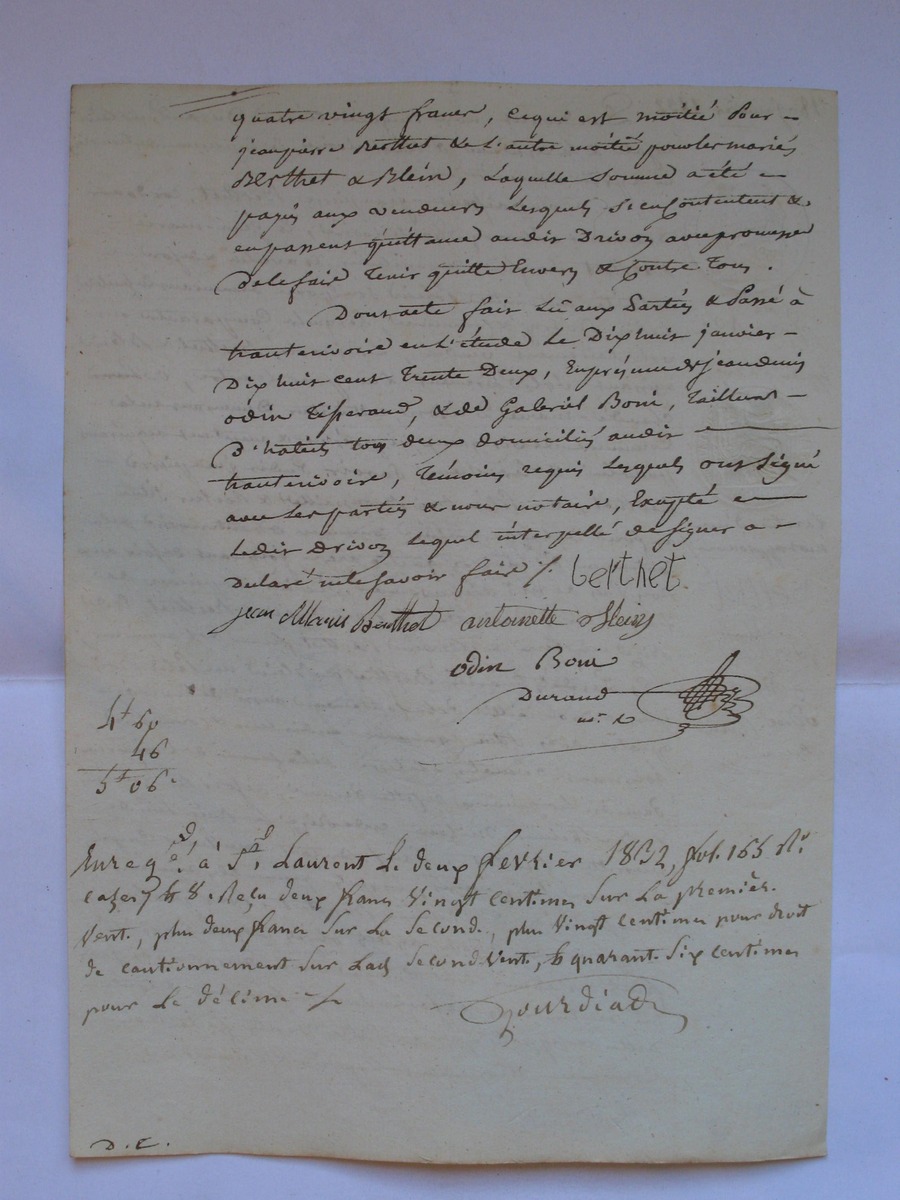 quatre vingt francs, cequi est moitié pour
jeanpierre Berthet & L'autre moitié pourlesmariés
Berthet & Blein, Laquelle somme aété
payés aux vendeurs lesquels s'encontentent &
enpassent quittance audit Drivon avecpromesse
Delefaire Tenir quitte Envers & contre Tous.
Dontacte fait Lû aux Parties & Passé à
hauterivoire enl'étude Le Dixhuit janvier
Dixhuit cent Trente Deux, Enprésence de jeandenis
odin Tisserand, & de Gabriel Boni, Tailleur
D'habits tous deux domiciliés audit
hauterivoire, Témoins requis lesquels ont signé
avec Les parties & nous notaire, Excepté
Ledit Drivon Lequel interpellé designer a
Déclaré nelesavoir faire /. berthet
jean Marie Berthet antoinette Blein
odin Boni
Durand
nre
4f 60
46
5f 06c
Enregé à St Laurent Le deux fevrier 1832, fol. 165 Ro
cases 7 & 8. Reçu deux francs Vingt centimes sur La premiere
Vente, plus deux francs sur La Seconde, plus Vingt centimes pour droit
de cautionnement sur Lad. Seconde Vente, & quarante Six centimes
pour Le décime
D. E.